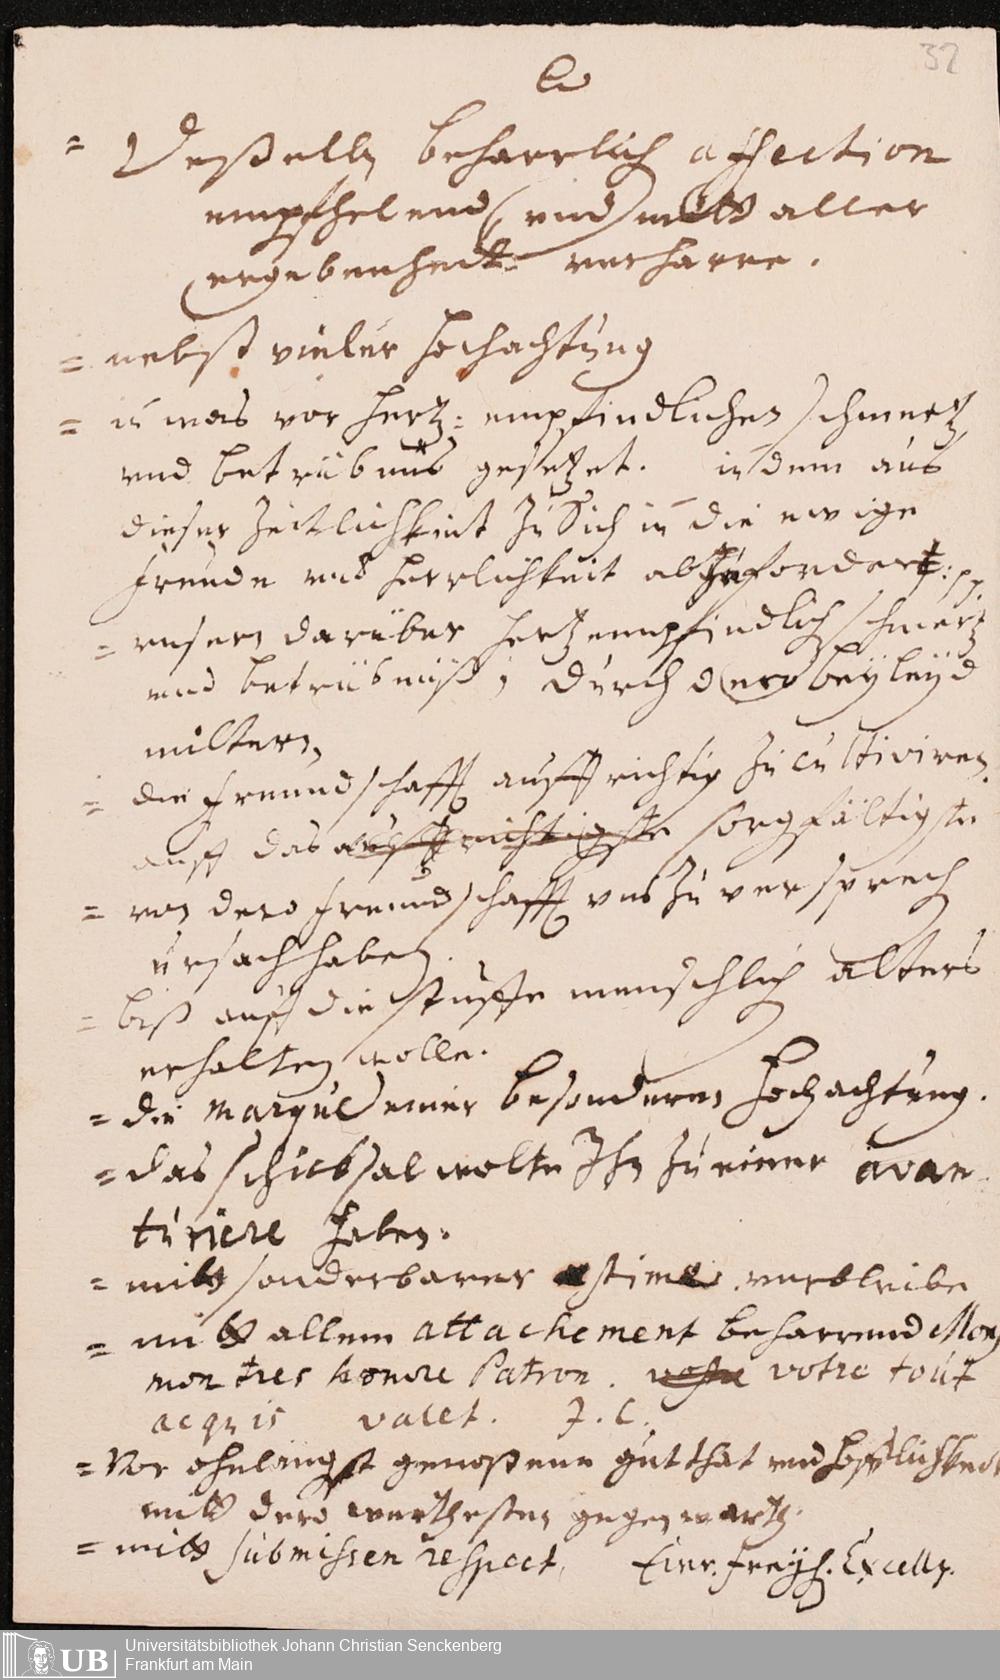 32
= Deßelb beharrlich affection
empfhelend und mitt aller
ergebenheit verharre.
= nebst vieler hochachtung
= in was vor hertz: empfindlichen schmertz
und betrübnus gesetzet. in dem aus
dieser Zeitlichkeit Zu Sich in die ewige
freude und herrlichkeit abZufordern: pp
= unsern darüber hertzempfindlich schmertz
und betrübnüß, durch dero beÿleÿd
miltern,
= die freundschafft auffrichtig Zu cultiviren.
auff das auffrichtigste sorgfältigste
= von dero freundschafft uns Zu versprech
ursach haben.
= biß auff die stuffe menschlich alters
erhalten wolle.
= die marque einer besondern hochachtung.
= das schicksal wolte Ihn Zu einer avan-
türiere haben.
= mitt sonderbarer estime verbleibe
= mitt allem attachement beharrend Mons
mon tres honore Patron. votre tout
acquis valet. J. C.
= Vor ohnlängst genoßene gutthat und höfflichkeit
mitt dero werthesten gegenwarth.
= mitt submissen respect, Eur. freÿh. Excell.
UB
Universitätsbibliothek Johann Christian Senckenberg
Frankfurt am Main